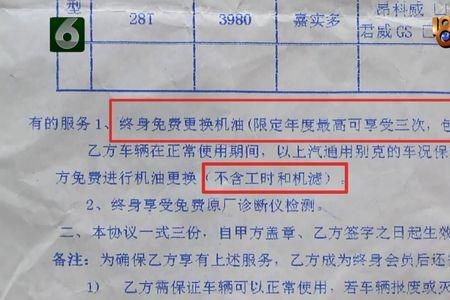 型
28T
3980
嘉实多
昂科威
君威 GS
6
有的服务 1、终身免费更换机油(限定年度最高可享受三次,包
乙方车辆在正常使用期间,以上汽通用别克的车况保
方免费进行机油更换(不含工时和机滤)。
2、终身享受免费原厂诊断仪检测。
二、本协议一式三份,自甲方盖章、乙方签字之日起生效
备注:为确保乙方享有上述服务,乙方成为终身会员后还
1) 乙方需保证车辆可以正常使用,若车辆报废或